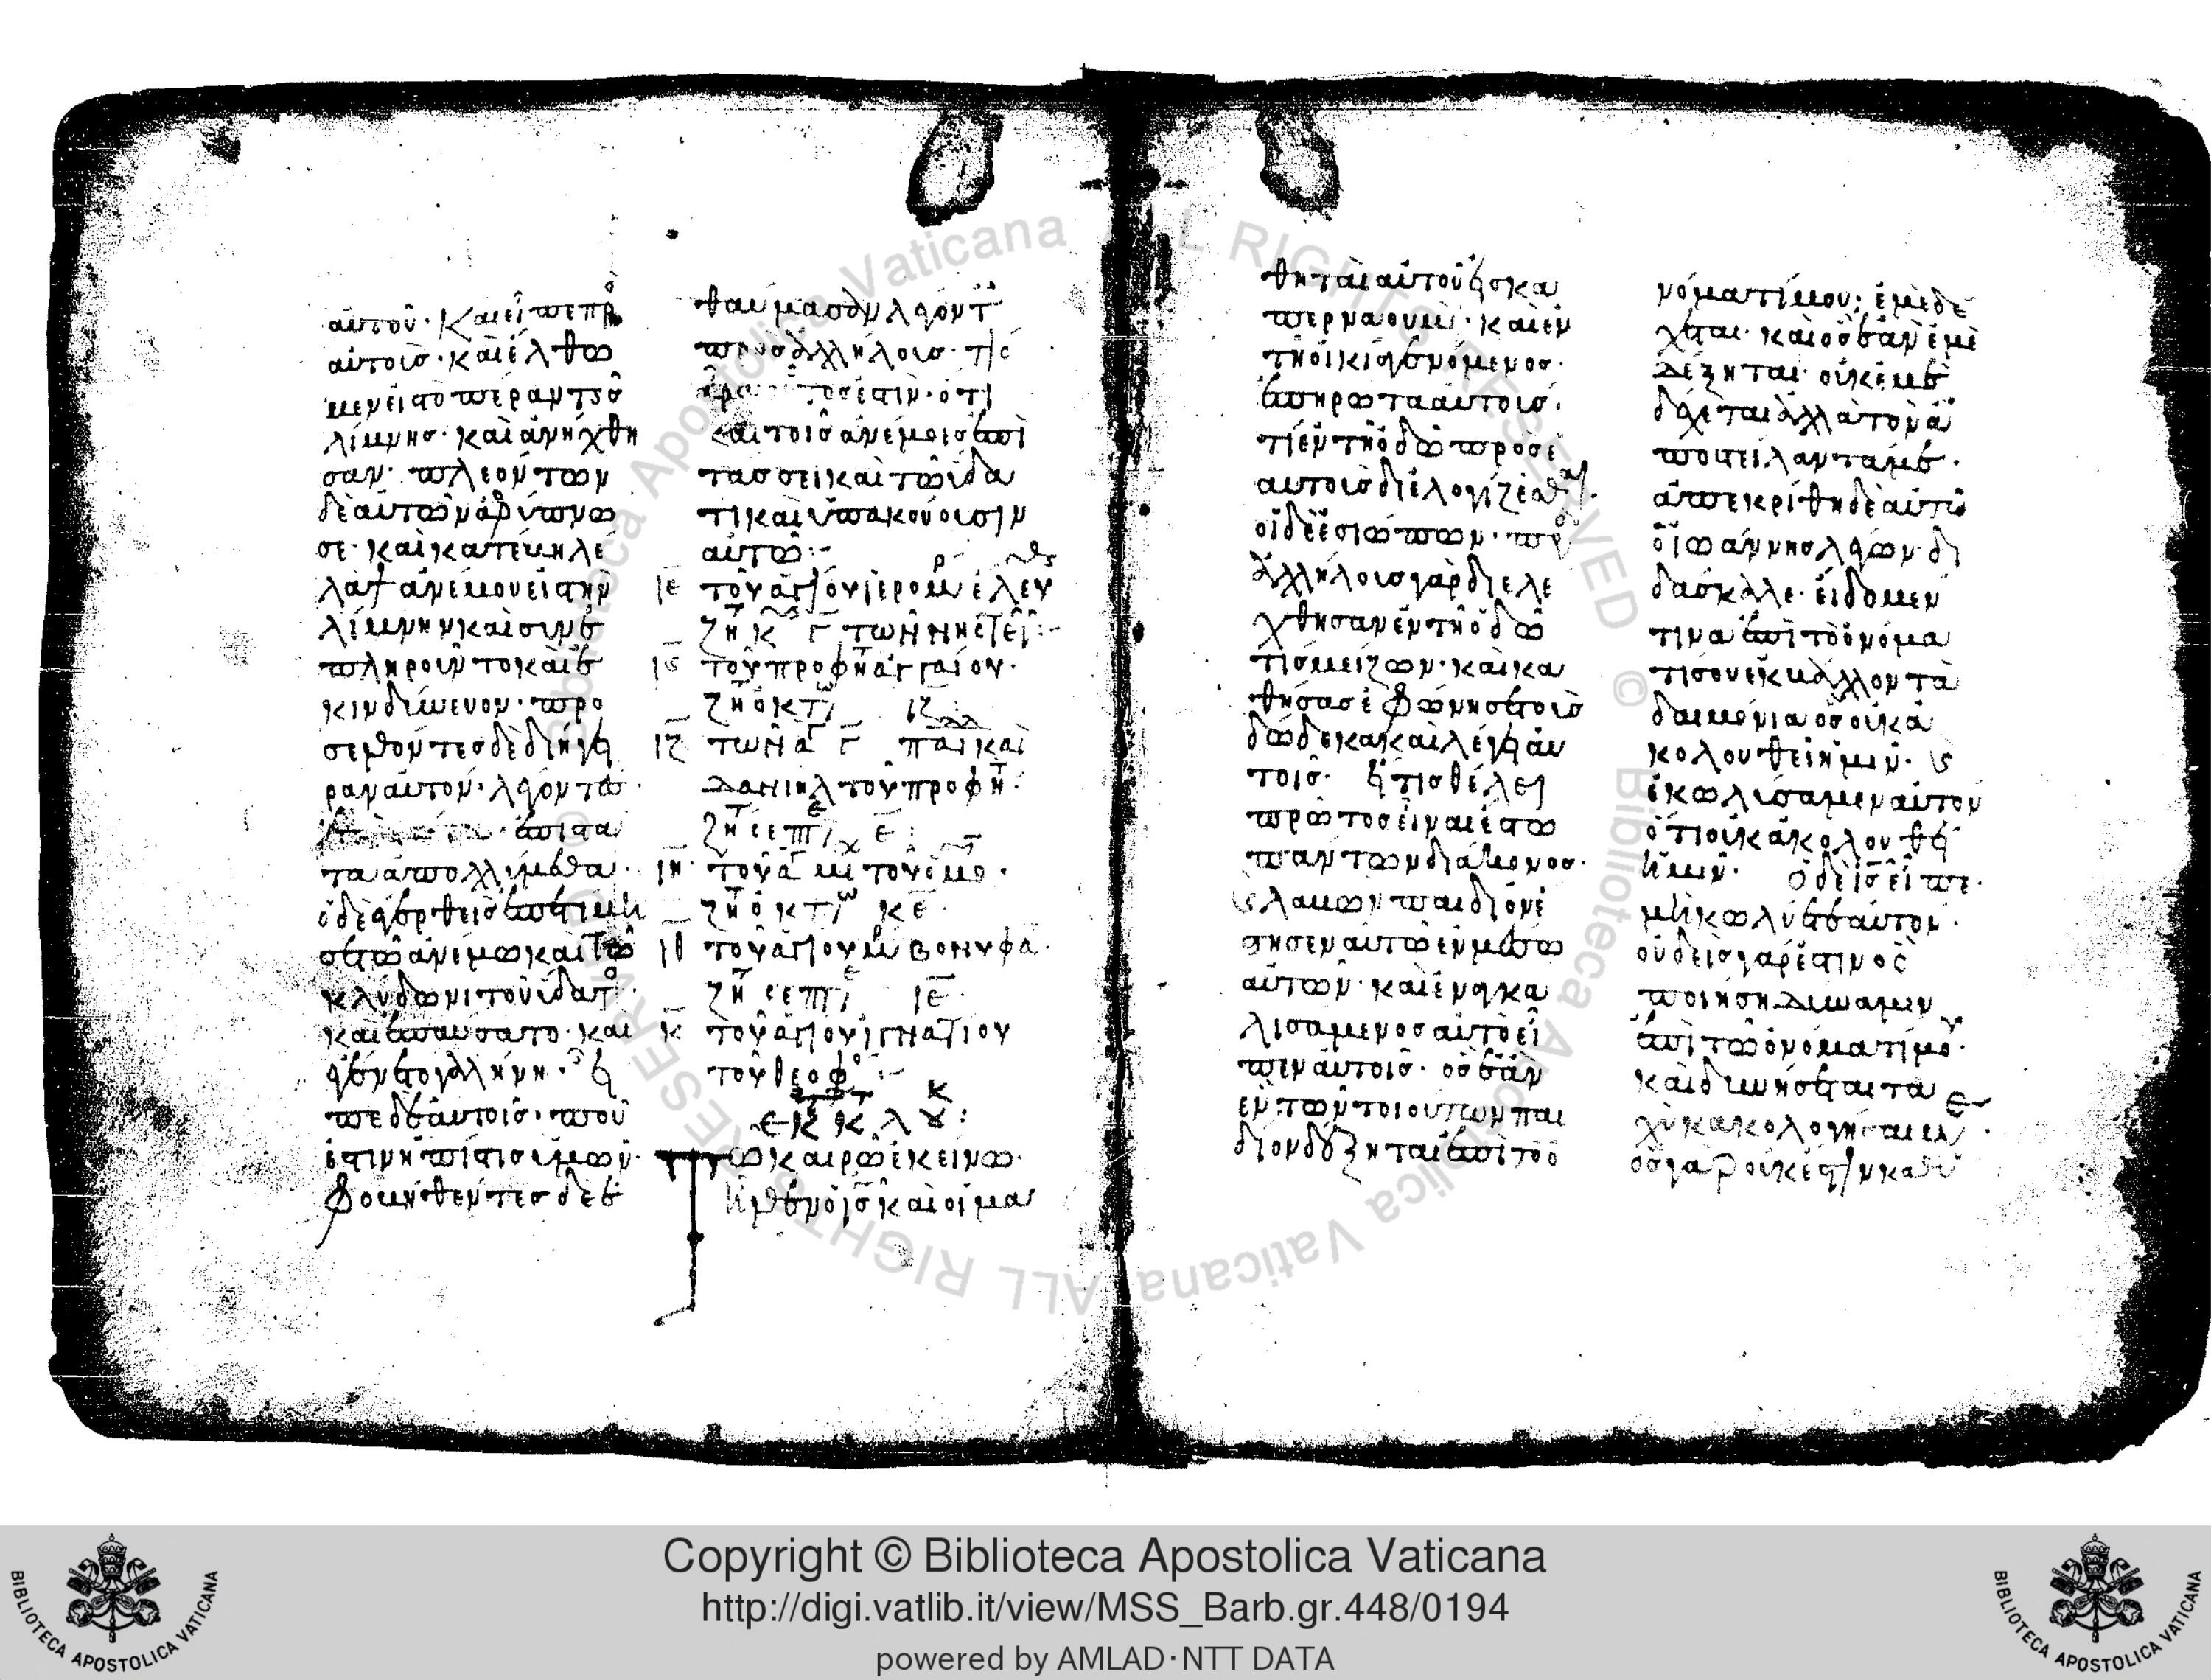 αὐτοῦ· Καὶ εἶπε πρ
αὐτοὺσ· καὶ ἐλθω
μεν εἰσ τὸ πέραν τῆσ
λίμνησ· καὶ ἀνήχθη
σαν· πλεόντων
δὲ αὐτῶν ἀφύπνω
σε· καὶ κατέβη λαῖ
λαψ ἀνέμου εἰσ τὴν
λίμνην καὶ συνε
πληροῦντο καὶ ἐ
κινδύνευον· προ
σελθόντεσ δὲ διήγει
ραν αὐτὸν· λέγοντεσ·
ἐπιστα
τα ἀπολλύμεθα·
ὁ δὲ ἐγερθεὶσ ἐπετίμη
σε τῷ ἀνέμω καὶ τῶ
κλύδωνι τοῦ ὕδατο·
καὶ ἐπαύσατο· καὶ
ἐγένετο γαλήνη· εἶ
πε δὲ αὐτοῖσ· ποῦ
ἐστιν ἡ πίστισ ὑμῶν·
φοβηθέντεσ δὲ ἐ
θαύμασαν λέγοντ
πρὸσ ἀλλήλουσ· τίσ
ἄρα οὗτοσ ἐστὶν· ὅτι
καὶ τοῖσ ἀνέμοισ ἐπι
τάσσει καὶ τῶ ὕδα
τι καὶ ὑπακούουσιν
αὐτῶ:-
ιε τοῦ ἁγίου ἱερομ ἐλευ
ις τοῦ προφή ἀγγαίου·
ζή ὀκτ ιζ
ιζ τῶν ἁγ γ παί καὶ
δανιὴλ τοῦ προφή·
ιη τοῦ ἁγ
ζή ὀκτ κε
ιθ τοῦ ἁγίου μ βονυφα
κ τοῦ ἁγίου ἰγνατίου
τοῦ θεοφ:-
ἐκ κ
Τῶ καιρῶ ἐκείνω·
ὁ ισ καὶ οἱ μα
θηταὶ αὐτοῦ εἰσ κα
περναοὺμ· καὶ ἐν
τῆ οἰκία γενόμενοσ·
ἐπηρώτα αὐτοὺσ·
τί ἐν τῆ ὁδῶ πρὸσ ἑ
αυτοὺσ διελογίζεσθαι·
οἱ δὲ ἐσιώπων· πρ
ἀλλήλουσ γὰρ διελέ
χθησαν ἐν τῆ ὁδῶ
τίσ μείζων· καὶ κα
θήσασ ἐφώνησε τοὺσ
δώδεκα καὶ λέγει αὐ
τοῖσ· εἴ τισ θέλει
πρῶτοσ εἶναι ἔστω
πάντων διάκονοσ·
λαβὼν παιδίον ἔ
στησεν αὐτὸ ἐν μέσω
αὐτῶν· καὶ ἐναγκα
λισάμενοσ αὐτὸ εἶ
πεν αὐτοῖσ· ὃσ ἐὰν
ἓν τῶν τοιούτων παι
δίον δέξηται ἐπὶ τῶ ὀ
νόματί μου· ἐμὲ δέ
χεται· καὶ ὃσ ἐὰν ἐμὲ
δέξηται· οὐκ ἐμὲ
δέχεται ἀλλὰ τὸν ἀ
ποστείλαντά με·
ἀπεκρίθη δὲ αὐτῶ
ὁ ἰωάννησ λέγων· δι
δάσκαλε· εἴδομεν
τινα ἐπὶ τὸ ὄνομα
τί σου ἐκβάλλοντα
δαιμόνια ὃσ οὐκ ἀ
κολουθεῖ ἡμῖν·
ἐκωλύσαμεν αὐτὸν
ὅτι οὐκ ἀκολουθεῖ
ἡμῖν· ὁ δὲ ισ εἶπε·
μὴ κωλύετε αὐτόν·
οὐδεὶσ γάρ ἐστιν ὃσ
ποιήση δύναμιν
ἐπὶ τῶ ὀνόματί μου·
καὶ δυνήσεται τα
χὺ κακολογῆσαι με·
ὃσ γὰρ οὐκ ἔστιν καθ
Copyright © Biblioteca Apostolica Vaticana
http://digi.vatlib.it/view/MSS_Barb.gr.448/0194
powered by AMLAD·NTT DATA
BIBLIOTECA APOSTOLICA VATICANA
BIBLIOTECA APOSTOLICA VATICANA